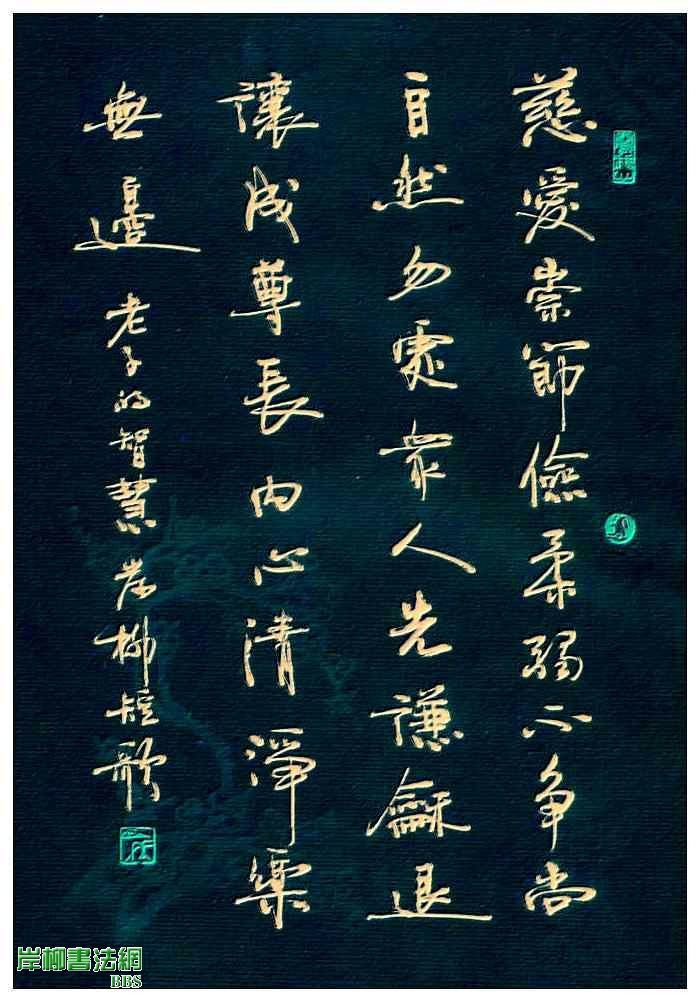 慈愛崇節儉柔弱不争尚
自然勿處眾人先謙龢退
讓成尊長內心清淨樂
無邊 老子的智慧 岸柳短歌
岸柳書法網
BBS